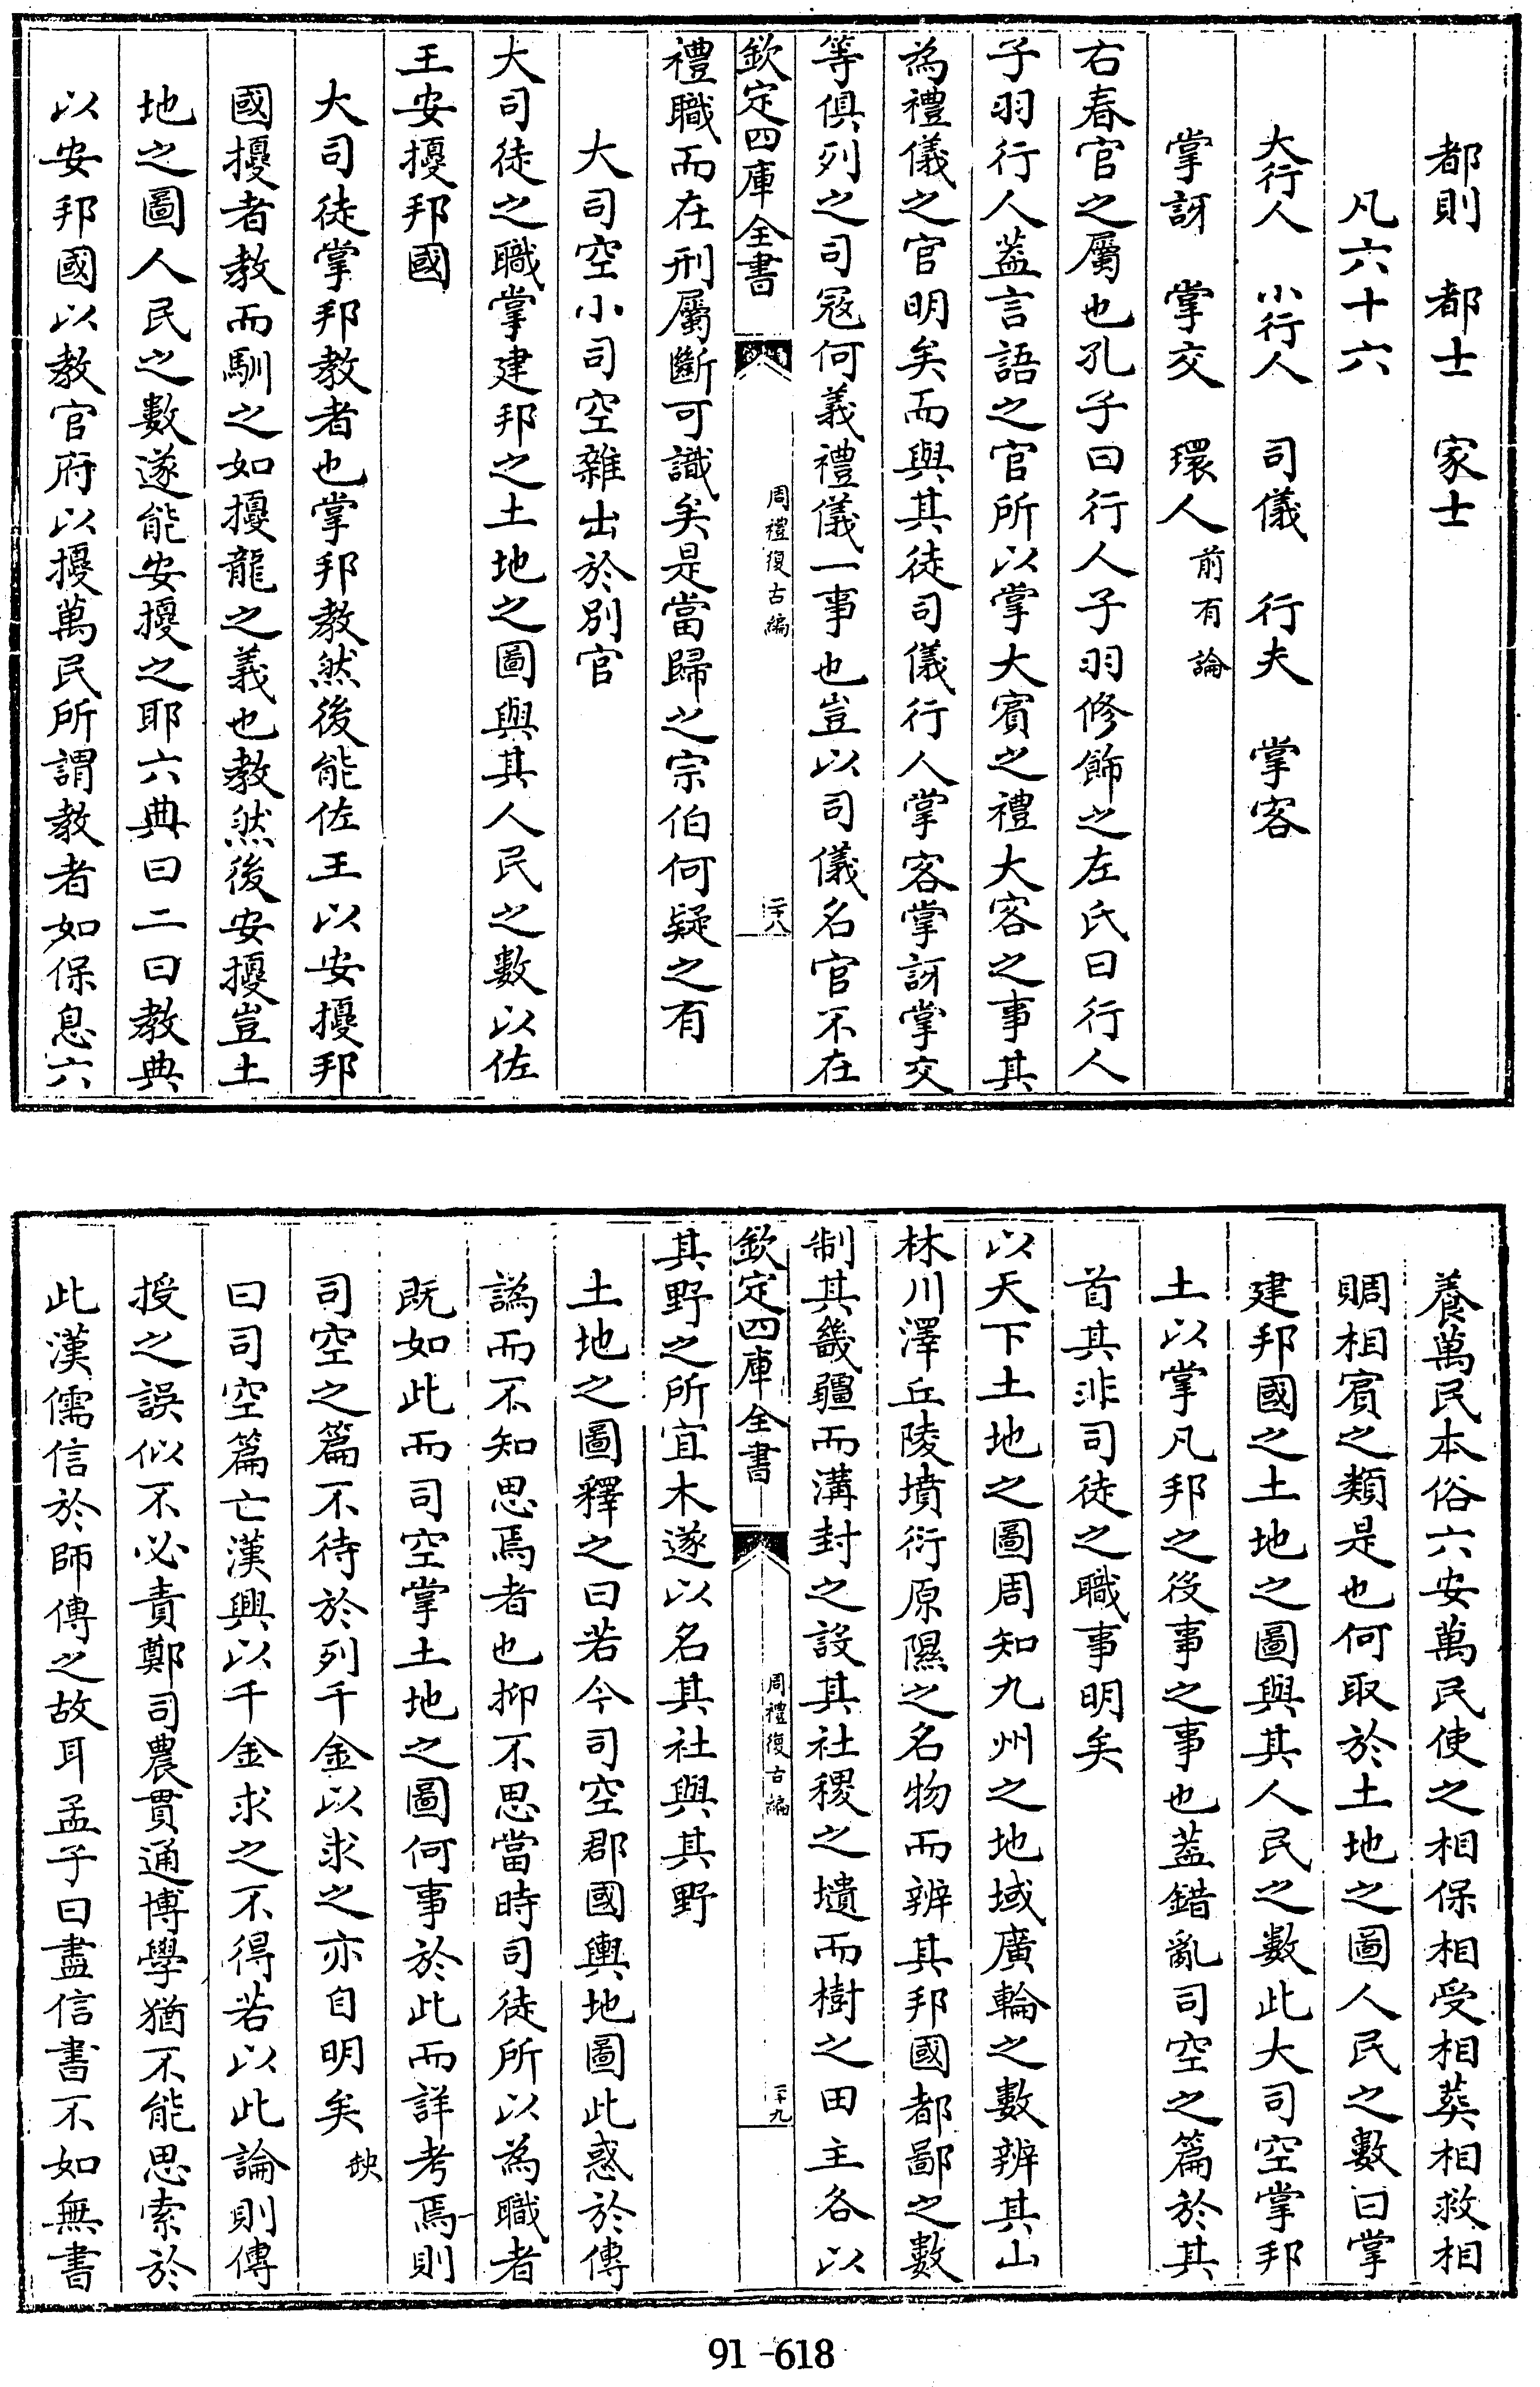 都則　都士　家士
凡六十六
大行人　小行人　司儀　行夫　掌客
掌訝　掌交　環人前有論
右春官之屬也孔子曰行人子羽修飾之左氏曰行人
子羽行人蓋言語之官所以掌大賓之禮大客之事其
為禮儀之官明矣而與其徒司儀行人掌客掌訝掌交
等俱列之司冦何義禮儀一事也豈以司儀名官不在
欽定四庫全書　周禮復古編　二十八
禮職而在刑屬斷可識矣是當歸之宗伯何疑之有
大司空小司空雜出於別官
大司徒之職掌建邦之土地之圖與其人民之數以佐
王安擾邦國
大司徒掌邦教者也掌邦教然後能佐王以安擾邦
國擾者教而馴之如擾龍之義也教然後安擾豈土
地之圖人民之數遂能安擾之耶六典曰二曰教典
以安邦國以教官府以擾萬民所謂教者如保息六
養萬民本俗六安萬民使之相保相受相葬相救相
賙相賓之類是也何取於土地之圖人民之數曰掌
建邦國之土地之圖與其人民之數此大司空掌邦
土以掌凡邦之役事之事也蓋錯亂司空之篇於其
首其非司徒之職事明矣
以天下土地之圖周知九州之地域廣輪之數辨其山
林川澤丘陵墳衍原隰之名物而辨其邦國都鄙之數
制其畿疆而溝封之設其社稷之壝而樹之田主各以
欽定四庫全書　周禮復古編　二十九
其野之所宜木遂以名其社與其野
土地之圖釋之曰若今司空郡國輿地圖此惑於傳
譌而不知思焉者也抑不思當時司徒所以為職者
既如此而司空掌土地之圖何事於此而詳考焉則
司空之篇不待於列千金以求之亦自明矣缺
曰司空篇亡漢興以千金求之不得若以此論則傳
授之誤似不必責鄭司農貫通博學猶不能思索於
此漢儒信於師傳之故耳孟子曰盡信書不如無書
91-618